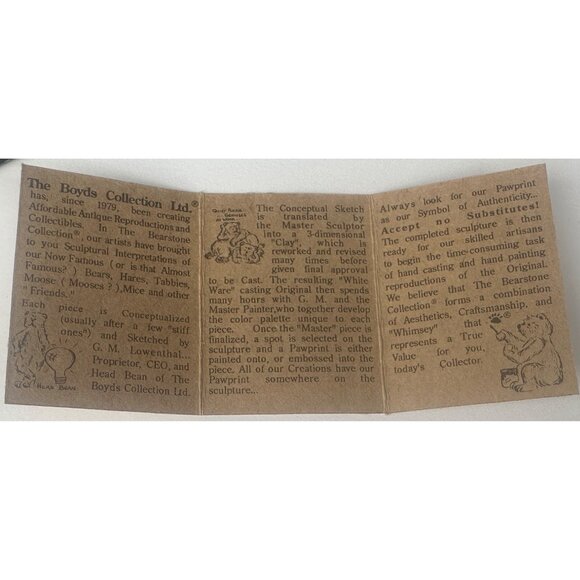 The Boyds Collection Ltd.®
has, since 1979, been creating
Affordable Antique Reproductions and
Collectibles. In The Bearstone
Collection®, our artists have brought
to you Sculptural Interpretations of
our Now Famous ( or is that Almost
Famous? ) Bears, Hares, Tabbies,
Moose ( Mooses ? ),Mice and other
"Friends.."
Each piece is Conceptualized
(usually after a few "stiff
ones") and Sketched by
G. M. Lowenthal...
Proprietor, CEO, and
Head Bean of The
Boyds Collection Ltd.
HEAD BEAN
The Conceptual Sketch
is translated by
the Master Sculptor
into a 3-dimensional
"Clay", which is
reworked and revised
many times before
given final approval
to be Cast. The resulting "White
Ware" casting Original then spends
many hours with G. M. and the
Master Painter,who together develop
the color palette unique to each
piece. Once the "Master" piece is
finalized, a spot is selected on the
sculpture and a Pawprint is either
painted onto, or embossed into the
piece. All of our Creations have our
Pawprint somewhere on the
sculpture...
Always look for our Pawprint
as our Symbol of Authenticity...
Accept no Substitutes!
The completed sculpture is then
ready for our skilled artisans
to begin the time-consuming task
of hand casting and hand painting
reproductions of the Original.
We believe that The Bearstone
Collection® forms a combination
of Aesthetics, Craftsmanship, and
"Whimsey" that
represents a True
Value for you,
today's Collector.